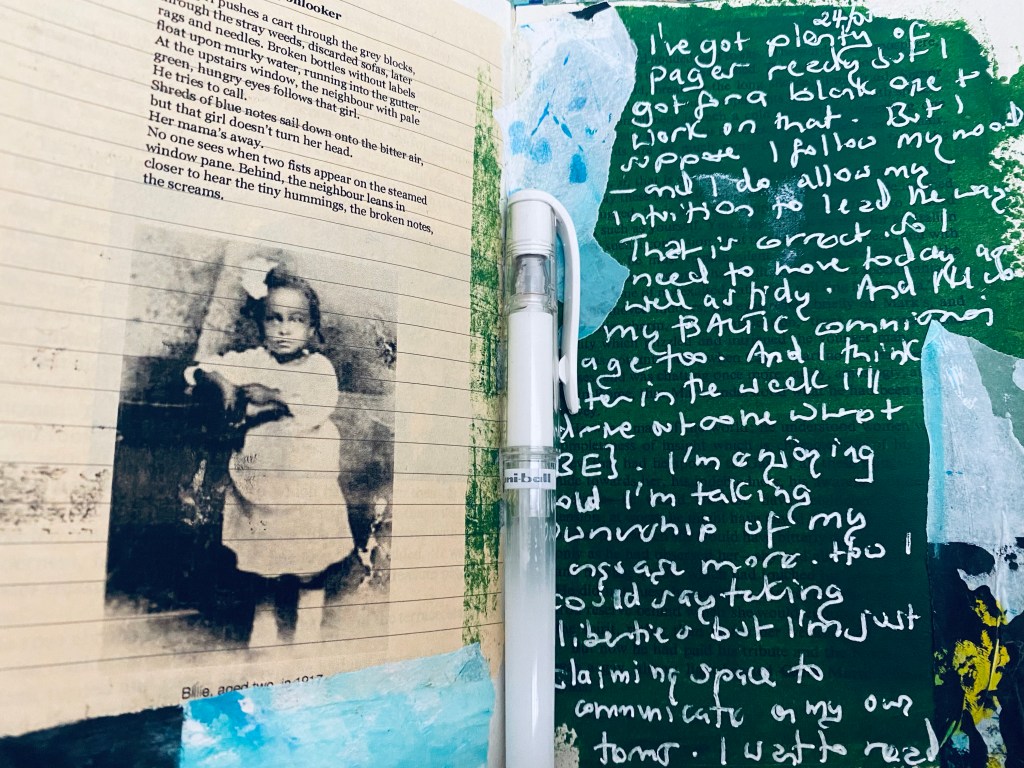 onlooker
pushes a cart through the grey blocks,
through the stray weeds, discarded sofas, later
rags and needles. Broken bottles without labels
float upon murky water, running into the gutter.
At the upstairs window, the neighbour with pale
green, hungry eyes follows that girl.
He tries to call.
Shreds of blue notes sail down onto the bitter air,
but that girl doesn't turn her head.
Her mama's away.
No one sees when two fists appear on the steamed
window pane. Behind, the neighbour leans in
closer to hear the tiny hummings, the broken notes,
the screams.
Billie, aged two, in 1917
uni-ball
24/
I've got plenty of
pages ready but I
got for a blank one &
work on that. But I
suppose I follow my mood
– and I do allow my
intuition to lead the way
That is correct. So I
need to move today as
well as tidy. And
my BALTIC
age too. And I think
in the week I'll
BE}. I'm enjoying
old I'm taking
ownership of my
more. I
could say taking
liberties but I'm just
claiming space to
communicate on my own
terms. I want to read